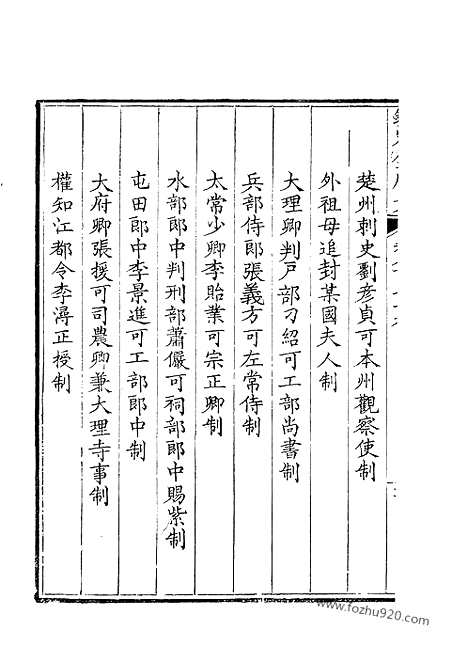 楚州刺史劉彥貞可本州觀察使制
外祖母追封某國夫人制
大理卿判戸部刁紹可工部尚書制
兵部侍郎張義方可左常侍制
太常少卿李貽業可宗正卿制
水部郎中判刑部蕭儼可祠部郎中賜紫制
屯田郎中李景進可工部郎中制
大府卿張援可司農卿兼大理寺事制
權知江都令李潯正授制
www.fozhu920.com